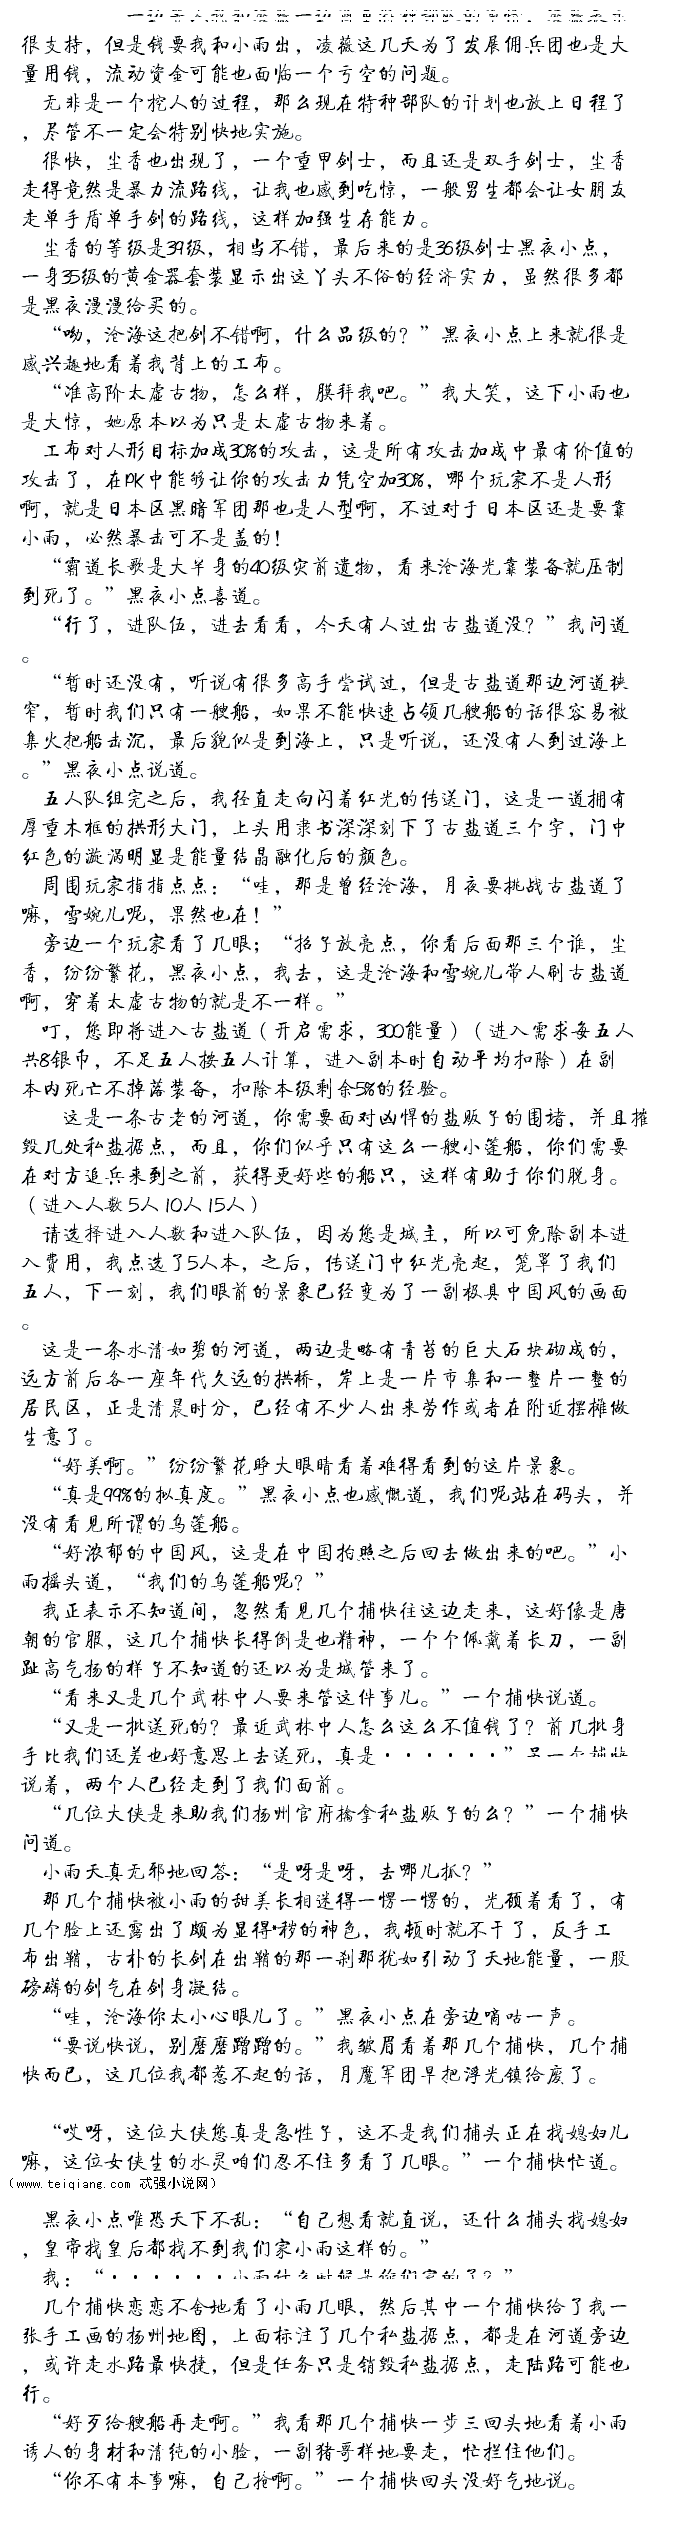 很支持，但是钱要我和小雨出，凌薇这几天为了发展佣兵团也是大
量用钱，流动资金可能也面临一个亏空的问题。
无非是一个挖人的过程，那么现在特种部队的计划也放上日程了
，尽管不一定会特别快地实施。
很快，尘香也出现了，一个重甲剑士，而且还是双手剑士，尘香
走得竟然是暴力流路线，让我也感到吃惊，一般男生都会让女朋友
走单手盾单手剑的路线，这样加强生存能力。
尘香的等级是39级，相当不错，最后来的是36级剑士黑夜小点，
一身35级的黄金器套装显示出这丫头不俗的经济实力，虽然很多都
是黑夜漫漫给买的。
“呦，沧海这把剑不错啊，什么品级的？”黑夜小点上来就很是
感兴趣地看着我背上的工布。
“准高阶太虚古物，怎么样，膜拜我吧。”我大笑，这下小雨也
是大惊，她原本以为只是太虚古物来着。
工布对人形目标加成30%的攻击，这是所有攻击加成中最有价值的
攻击了，在PK中能够让你的攻击力凭空加30%，哪个玩家不是人形
啊，就是日本区黑暗军团那也是人型啊，不过对于日本区还是要靠
小雨，必然暴击可不是盖的！
“霸道长歌是大半身的40级灾前遗物，看来沧海光靠装备就压制
到死了。”黑夜小点喜道。
“行了，进队伍，进去看看，今天有人过出古盐道没？”我问道
。
“暂时还没有，听说有很多高手尝试过，但是古盐道那边河道狭
窄，暂时我们只有一艘船，如果不能快速占领几艘船的话很容易被
集火把船击沉，最后貌似是到海上，只是听说，还没有人到过海上
。”黑夜小点说道。
五人队组完之后，我径直走向闪着红光的传送门，这是一道拥有
厚重木框的拱形大门，上头用隶书深深刻下了古盐道三个字，门中
红色的漩涡明显是能量结晶融化后的颜色。
周围玩家指指点点：“哇，那是曾经沧海，月夜要挑战古盐道了
嘛，雪婉儿呢，果然也在！”
旁边一个玩家看了几眼；“招子放亮点，你看后面那三个谁，尘
香，纷纷繁花，黑夜小点，我去，这是沧海和雪婉儿带人刷古盐道
啊，穿着太虚古物的就是不一样。”
叮，您即将进入古盐道（开启需求，300能量）（进入需求每五人
共8银币，不足五人按五人计算，进入副本时自动平均扣除）在副
本内死亡不掉落装备，扣除本级剩余5%的经验。
这是一条古老的河道，你需要面对凶悍的盐贩子的围堵，并且摧
毁几处私盐据点，而且，你们似乎只有这么一艘小篷船，你们需要
在对方追兵来到之前，获得更好些的船只，这样有助于你们脱身。
（进入人数5人10人15人）
请选择进入人数和进入队伍，因为您是城主，所以可免除副本进
入费用，我点选了5人本，之后，传送门中红光亮起，笼罩了我们
五人，下一刻，我们眼前的景象已经变为了一副极具中国风的画面
。
这是一条水清如碧的河道，两边是略有青苔的巨大石块砌成的，
远方前后各一座年代久远的拱桥，岸上是一片市集和一整片一整的
居民区，正是清晨时分，已经有不少人出来劳作或者在附近摆摊做
生意了。
“好美啊。”纷纷繁花睁大眼睛看着难得看到的这片景象。
“真是99%的拟真度。”黑夜小点也感慨道，我们呢站在码头，并
没有看见所谓的乌篷船。
“好浓郁的中国风，这是在中国拍照之后回去做出来的吧。”小
雨摇头道，“我们的乌篷船呢？”
我正表示不知道间，忽然看见几个捕快往这边走来，这好像是唐
朝的官服，这几个捕快长得倒是也精神，一个个佩戴着长刀，一副
趾高气扬的样子不知道的还以为是城管来了。
“看来又是几个武林中人要来管这件事儿。”一个捕快说道。
“又是一批送死的？最近武林中人怎么这么不值钱了？前几批身
手比我们还差也好意思上去送死，真是······”另一个捕快
说着，两个人已经走到了我们面前。
“几位大侠是来助我们扬州官府擒拿私盐贩子的么？”一个捕快
问道。
小雨天真无邪地回答：“是呀是呀，去哪儿抓？”
那几个捕快被小雨的甜美长相迷得一愣一愣的，光顾着看了，有
几个脸上还露出了颇为显得*秽的神色，我顿时就不干了，反手工
布出鞘，古朴的长剑在出鞘的那一刹那犹如引动了天地能量，一股
磅礴的剑气在剑身凝结。
“哇，沧海你太小心眼儿了。”黑夜小点在旁边嘀咕一声。
“要说快说，别磨磨蹭蹭的。”我皱眉看着那几个捕快，几个捕
快而已，这几位我都惹不起的话，月魔军团早把浮光镇给废了。
“哎呀，这位大侠您真是急性子，这不是我们捕头正在找媳妇儿
嘛，这位女侠生的水灵咱们忍不住多看了几眼。”一个捕快忙道。
（www.teiqiang.com 忒强小说网）
黑夜小点唯恐天下不乱：“自己想看就直说，还什么捕头找媳妇
，皇帝找皇后都找不到我们家小雨这样的。”
我：“······小雨什么时候是你们家的了？”
几个捕快恋恋不舍地看了小雨几眼，然后其中一个捕快给了我一
张手工画的扬州地图，上面标注了几个私盐据点，都是在河道旁边
，或许走水路最快捷，但是任务只是销毁私盐据点，走陆路可能也
行。
“好歹给艘船再走啊。”我看那几个捕快一步三回头地看着小雨
诱人的身材和清纯的小脸，一副猪哥样地要走，忙拦住他们。
“你不有本事嘛，自己抢啊。”一个捕快回头没好气地说。